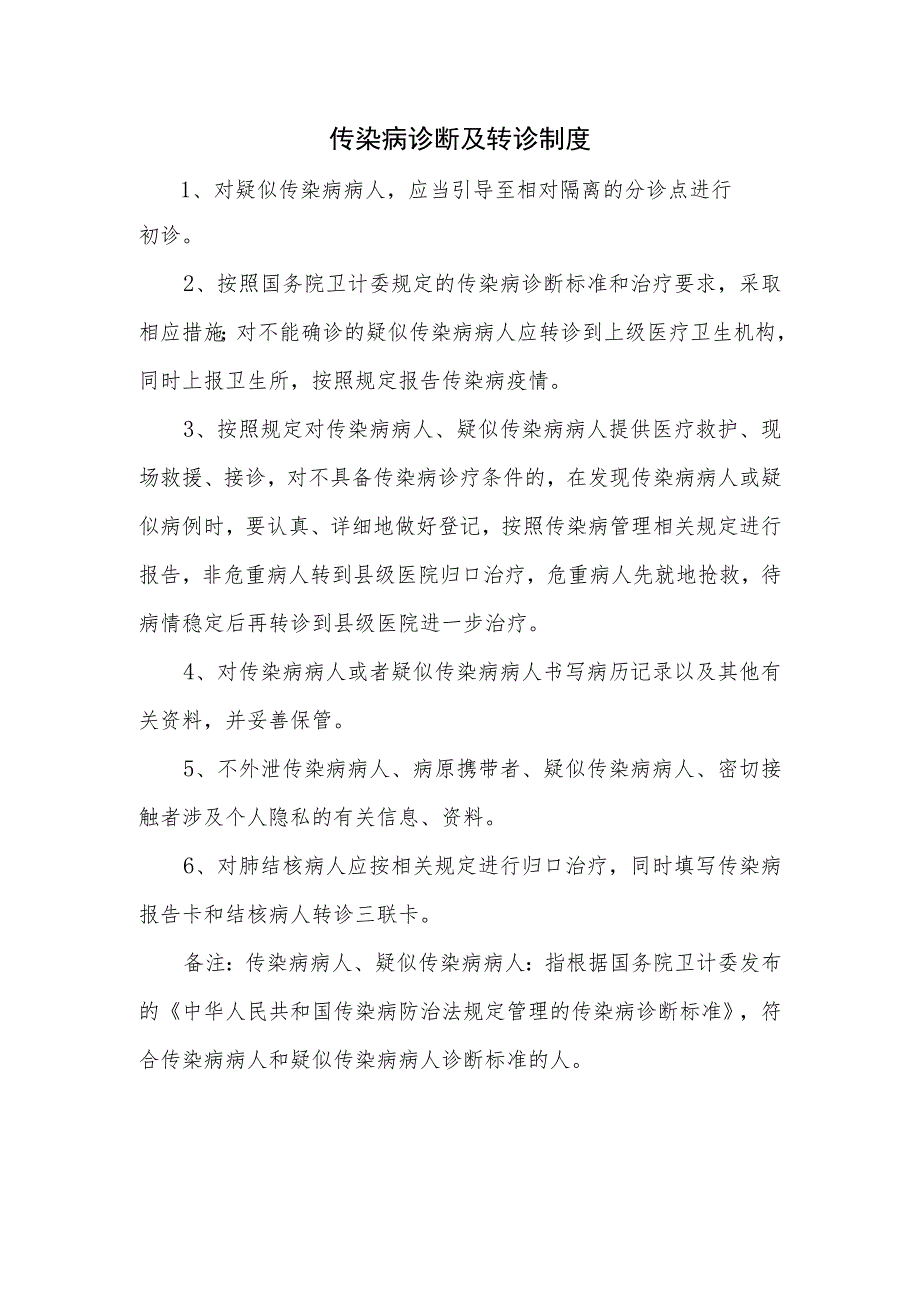 传染病诊断及转诊制度
1、对疑似传染病病人，应当引导至相对隔离的分诊点进行
初诊。
2、按照国务院卫计委规定的传染病诊断标准和治疗要求，采取
相应措施；对不能确诊的疑似传染病病人应转诊到上级医疗卫生机构，
同时上报卫生所，按照规定报告传染病疫情。
3、按照规定对传染病病人、疑似传染病病人提供医疗救护、现
场救援、接诊，对不具备传染病诊疗条件的，在发现传染病病人或疑
似病例时，要认真、详细地做好登记，按照传染病管理相关规定进行
报告，非危重病人转到县级医院归口治疗，危重病人先就地抢救，待
病情稳定后再转诊到县级医院进一步治疗。
4、对传染病病人或者疑似传染病病人书写病历记录以及其他有
关资料，并妥善保管。
5、不外泄传染病病人、病原携带者、疑似传染病病人、密切接
触者涉及个人隐私的有关信息、资料。
6、对肺结核病人应按相关规定进行归口治疗，同时填写传染病
报告卡和结核病人转诊三联卡。
备注：传染病病人、疑似传染病病人：指根据国务院卫计委发布
的《中华人民共和国传染病防治法规定管理的传染病诊断标准》，符
合传染病病人和疑似传染病病人诊断标准的人。